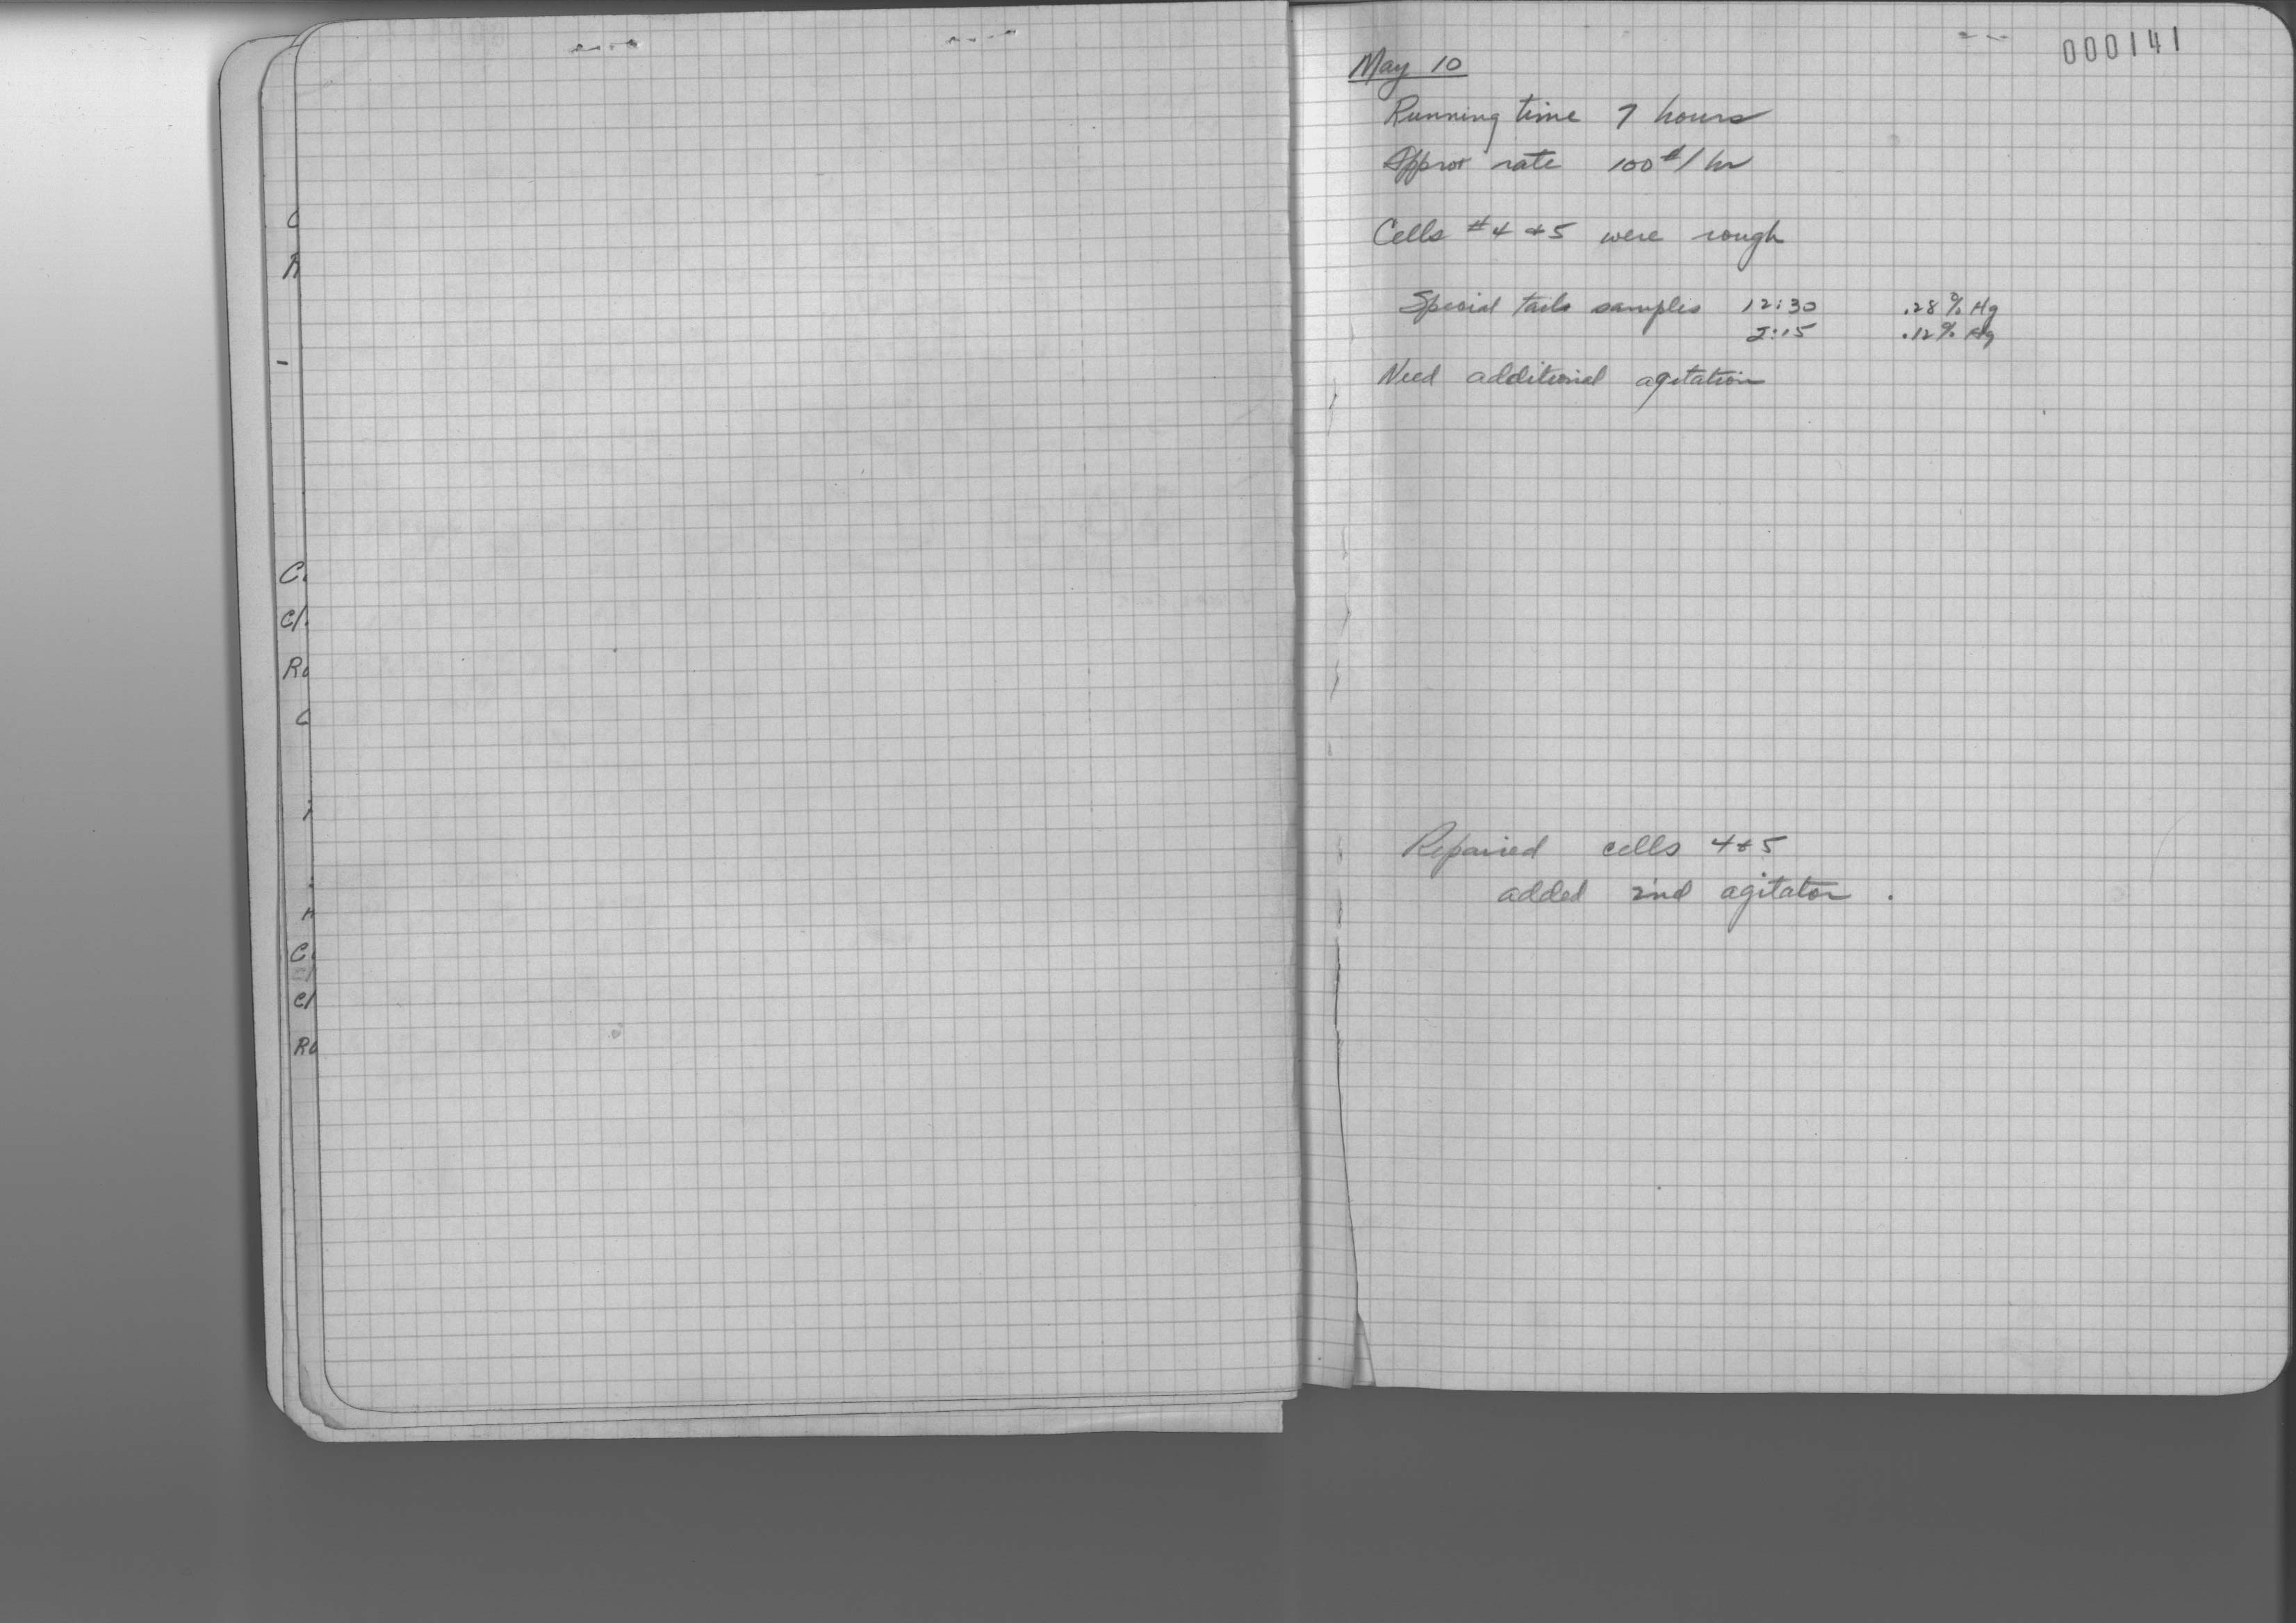 000141
May 10
Running time 7 hours
Approx rate 100#/hr
Cells #4 & 5 were rough
Special tails samples 12:30 .28% Hg
2:15 .12% Hg
Need additional agitation
Repaired cells 4 & 5
added 2nd agitator.
C
C
Cl
Ro
C
C
Cl
Ro